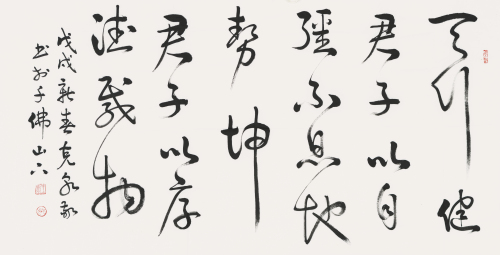 天行健
君子以自
强不息地
势坤
君子以厚
德载物
戊戌新春克泉敬
书于千佛山下